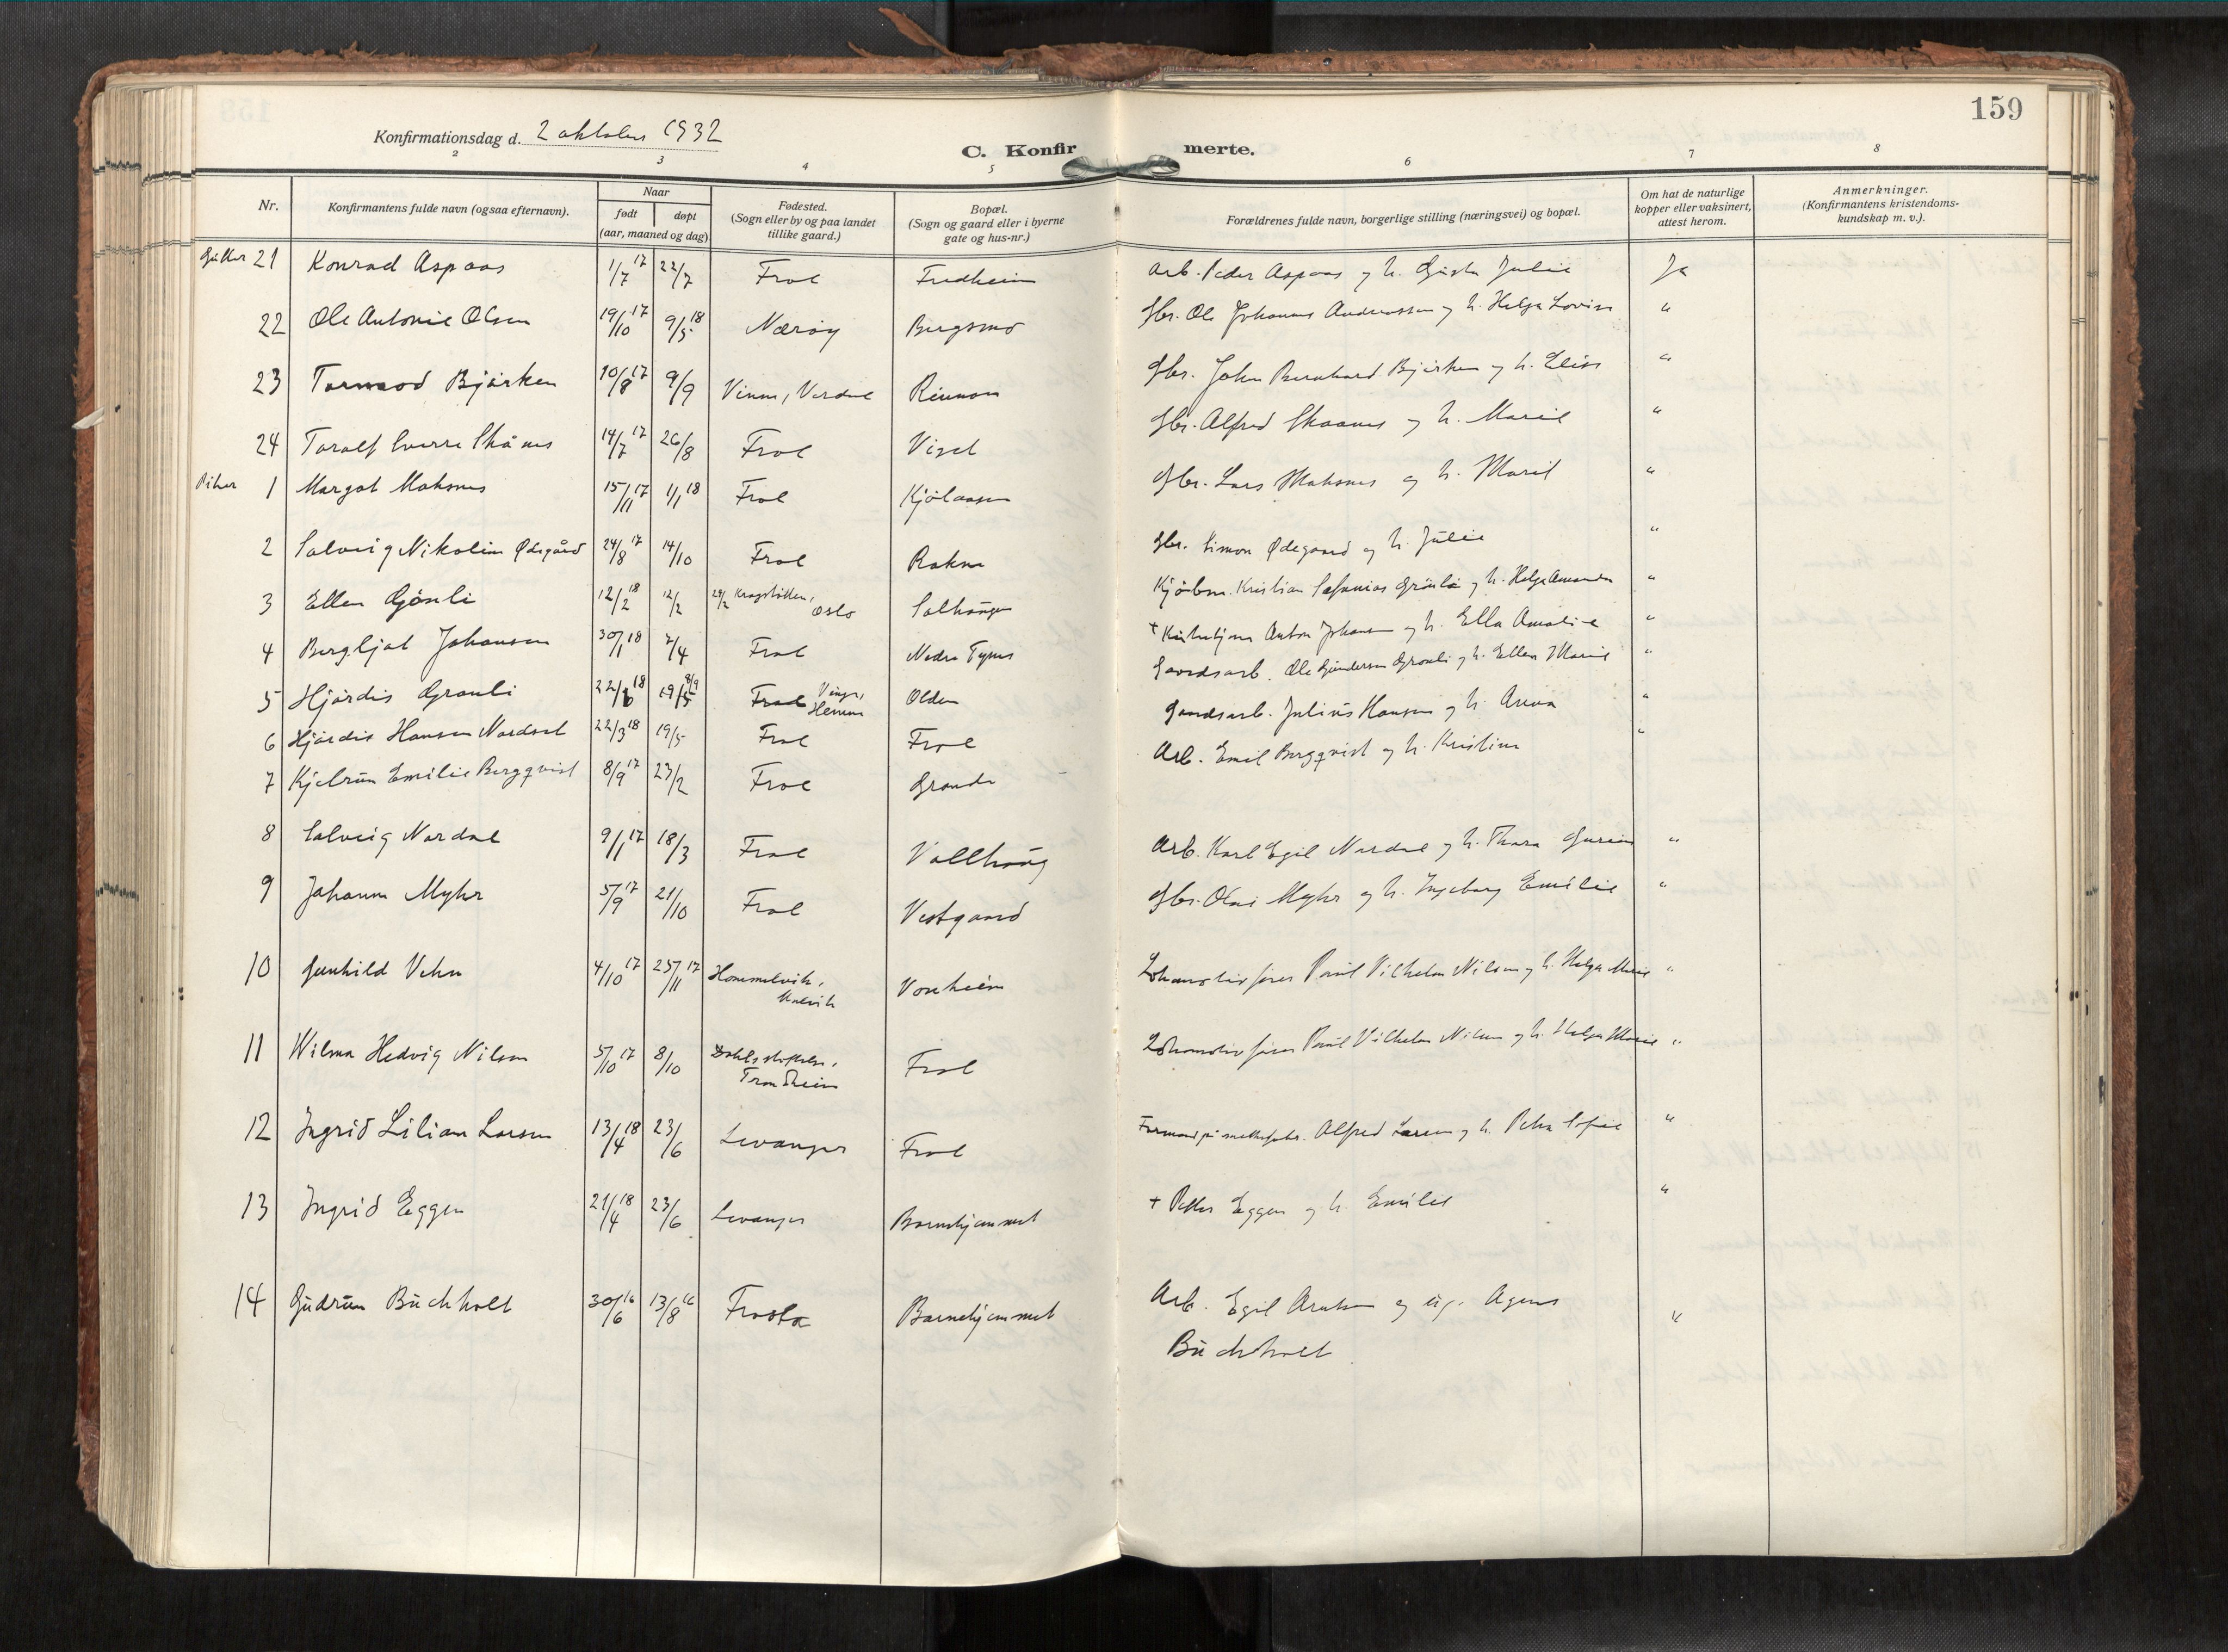 159
Konfirmationsdag d. 2 oktober 1932
C. Konfirmerte.
2 3 4 5 6 7 8
Nr. Konfirmantens fulde navn (ogsaa efternavn). Naar født døpt (aar, maaned og dag) Fødested. (Sogn eller by og paa landet tillike gaard.) Bopæl. (Sogn og gaard eller i byerne gate og hus-nr.) Forældrenes fulde navn, borgerlige stilling (næringsvei) og bopæl. Om hat de naturlige kopper eller vaksinert, attest herom. Anmerkninger. (Konfirmantens kristendomskundskap m. v.).
Gutter 21 Konrad Aspaas 1/7 17 22/7 Frol Fredheim Arb. Peder Aspaas og h. Julie Ja
22 Ole Antonie Olsen 19/10 17 9/5 18 Nærøy Bergsmo Gbr. Ole Johannes Andreassen og h. Helga Lovise "
23 Tormod Bjørken 10/8 17 9/9 Vinne, Verdal Rinnan Gbr. John Bernhard Bjørken og h. Elise "
24 Toralf Sverre Skånes 14/7 17 26/8 Frol Visel Gbr. Alfred Skaanes og h. Marie "
Piker 1 Margot Moksnes 15/11 17 1/1 18 Frol Kjølaasen Gbr. Lars Moksnes og h. Marit "
2 Solveig Nikoline Ødegård 24/8 17 14/10 Frol Gbr. Simon Ødegaard og h. Julie "
3 Ellen Grønli 12/2 18 12/2 Oslo Solhaugen Kjøbm. Kristian Grønli og h. Helga Amanda "
4 Bergljot Johansen 30/1 18 7/4 Frol Nedre Tynes + Anton Johansen og h. Ella Amalie "
5 Hjørdis Gronli 22/6 18 19/5 8/9 Frol Hemnes Olden Gaardsarb. Ole Gundersen Gronli og h. Ellen Marie "
6 Hjørdis Hansen Nordsal 22/3 18 19/5 Frol Frol Gaardsarb. Julius Hansen og h. Anna "
7 Kjelrun Emilie Bergqvist 8/9 17 23/2 Frol Grande Arb. Emil Bergqvist og h. Kristine "
8 Solveig Nordal 9/1 17 18/3 Frol Vollhaug Arb. Karl Egil Nordal og h. Thora "
9 Johanne Myhr 5/9 17 21/10 Frol Vestgaard Gbr. Olai Myhr og h. Ingeborg Emilie "
10 Gunhild Vehn 4/10 17 25/11 17 Hommelvik, Malvik Voxheim Lokomotivfører Paul Vilhelm Nilsen og h. Helga Marie "
11 Wilma Hedvig Nilsen 5/10 17 8/10 Trondheim Frol Lokomotivfører Paul Vilhelm Nilsen og h. Helga Marie "
12 Ingrid Lilian Larsen 13/4 18 23/6 Levanger Frol Formand på Alfred Larsen og h. Petra Sofie "
13 Ingrid Eggen 21/4 18 23/6 Levanger Barnehjemmet + Petter Eggen og h. Emilie "
14 Gudrun Buchholt 30/6 16 13/8 16 Frosta Barnehjemmet Arb. Egil Arntsen og ug. Agnes "
Buchholt